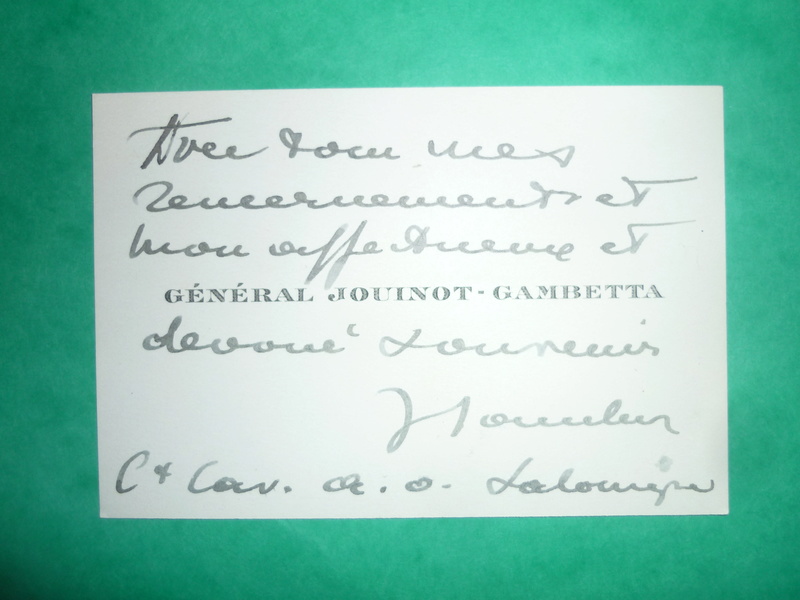 Avec tous mes
remerciements et
mon affectueux et
GÉNÉRAL JOUINOT-GAMBETTA
dévoué souvenir
Ct Cav. a. o. Salonique